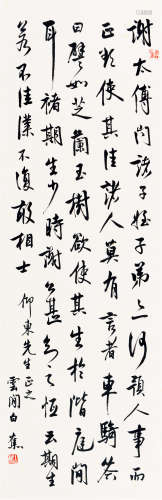 謝太傅問諸子姪子弟亦何預人事而
正欲使其佳諸人莫有言者車騎答
曰譬如芝蘭玉樹欲使其生於階庭間
耳褚期生少時謝公甚知之恆云期生
若不佳僕不復敢相士
仰東先生正之
雲間白蕉